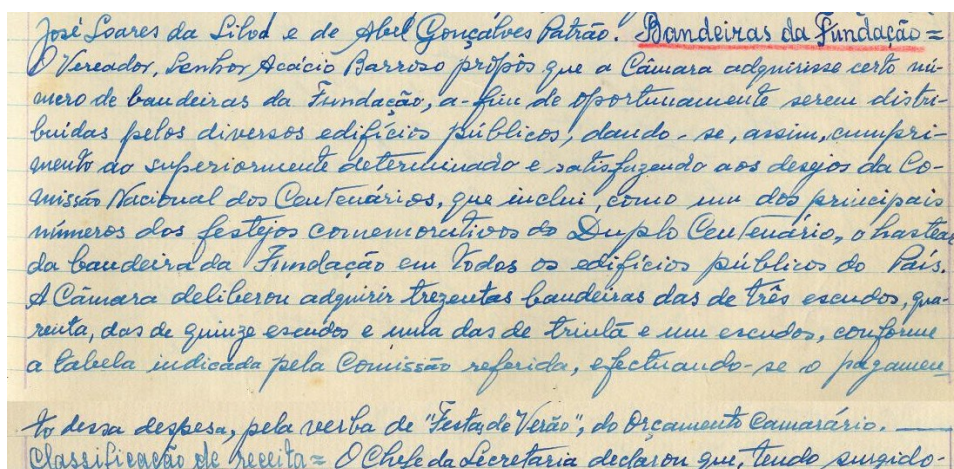 José Soares da Silva e de Abel Gonçalves Patrão. Bandeiras da Fundação =
O Vereador, Senhor Acácio Barroso propôs que a Câmara adquirisse certo nú-
mero de bandeiras da Fundação, a-fim de oportunamente serem distri-
buidas pelos diversos edifícios públicos, dando-se, assim, cumpri-
mento ao superiormente determinado e satisfazendo aos desejos da Co-
missão Nacional dos Centenários, que inclui, como um dos principais
números dos festejos comemorativos do Duplo Centenário, o hastear
da bandeira da Fundação em todos os edifícios públicos do País.
A Câmara deliberou adquirir trezentas bandeiras das de três escudos, qua-
renta, das de quinze escudos e uma das de trinta e um escudos, conforme
a tabela indicada pela Comissão referida, efectuando-se o pagamen-
to dessa despesa, pela verba de "Festa de Verão", do Orçamento Camarário. —
Classificação de receita = O Chefe da Secretaria declarou que, tendo surgido-